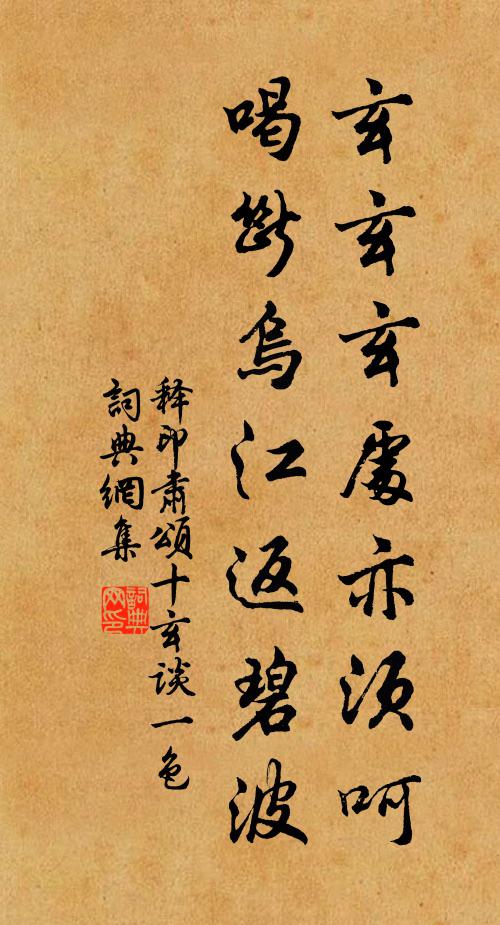 玄玄玄處亦須呵
喝斷烏江返碧波
释印肅頌十玄談一色
詞典網集
詞典
网印